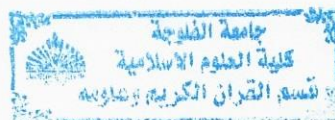 جامعة الفلوجة
كلية العلوم الاسلامية
قسم القرآن الكريم وعلومه